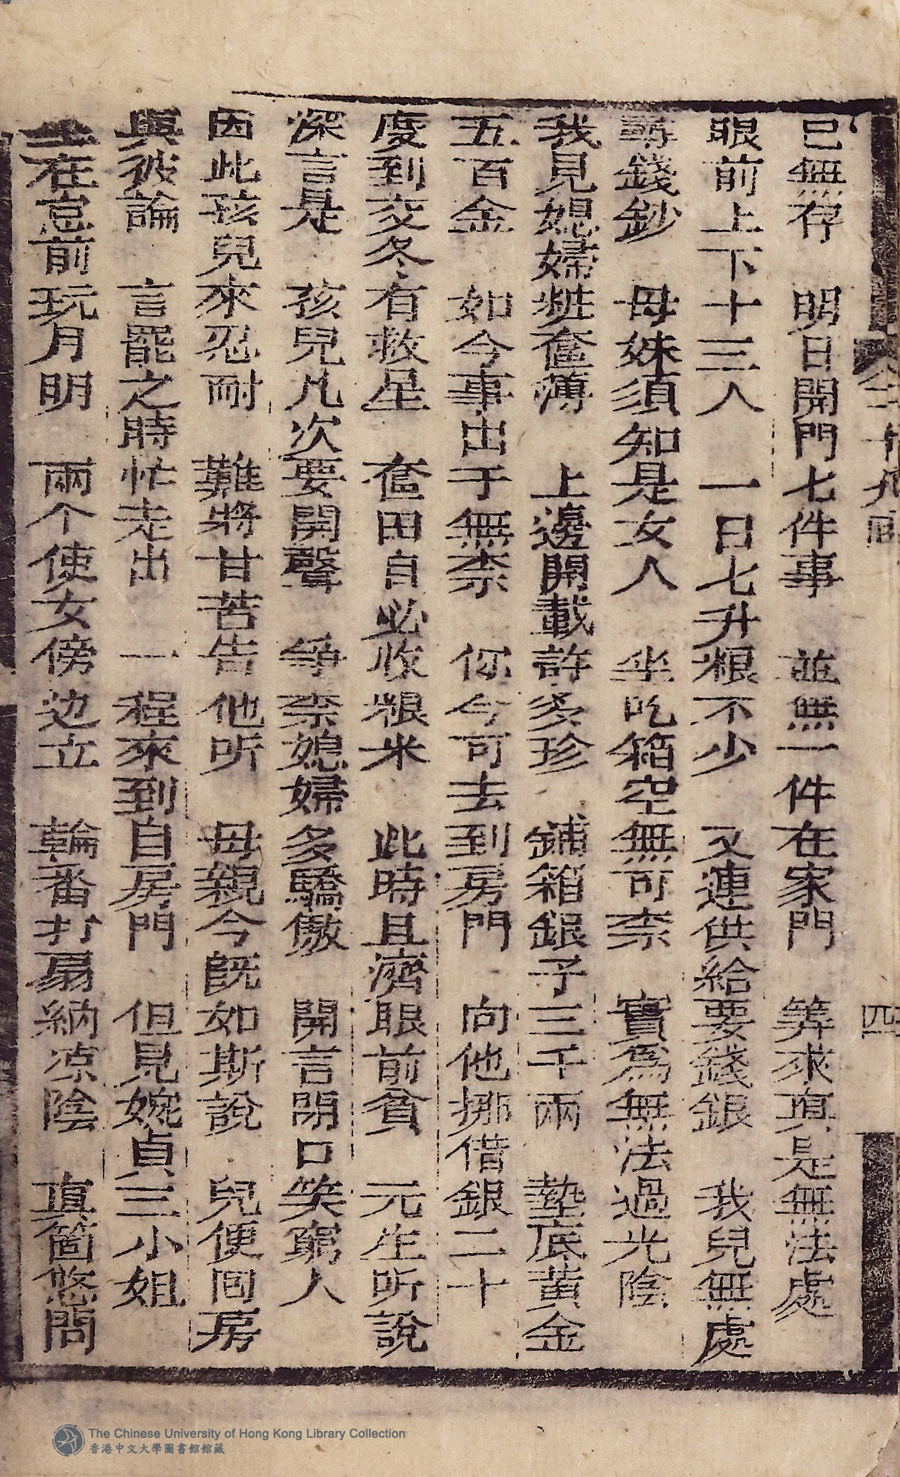 卷二十九回
四
已無存　明日開門七件事　並無一件在家門　筭來真是無法處
眼前上下十三人　一日七升粮不少　又連供給要錢銀　我兒無處
尋錢鈔　母妹須知是女人　坐吃箱空無可柰　實為無法過光陰
我見媳婦粧奩薄　上邊開載許多珍　鋪箱銀子三千兩　墊底黃金
五百金　如今事出于無柰　你今可去到房門　向他挪借銀二十
度到交冬有救星　奩田自必收粮米　此時且濟眼前貧　元生听說
深言是　孩兒凡次要開聲　爭柰媳婦多驕傲　開言閉口笑窮人
因此孩兒來忍耐　難將甘苦告他听　母親今旣如斯說　兒便囘房
與彼論　言罷之時忙走出　一程來到自房門　但見婉貞三小姐
坐在窓前玩月明　兩个使女傍边立　輪番打扇納凉陰　真箇悠閒
The Chinese University of Hong Kong Library Collection
香港中文大學圖書館館藏